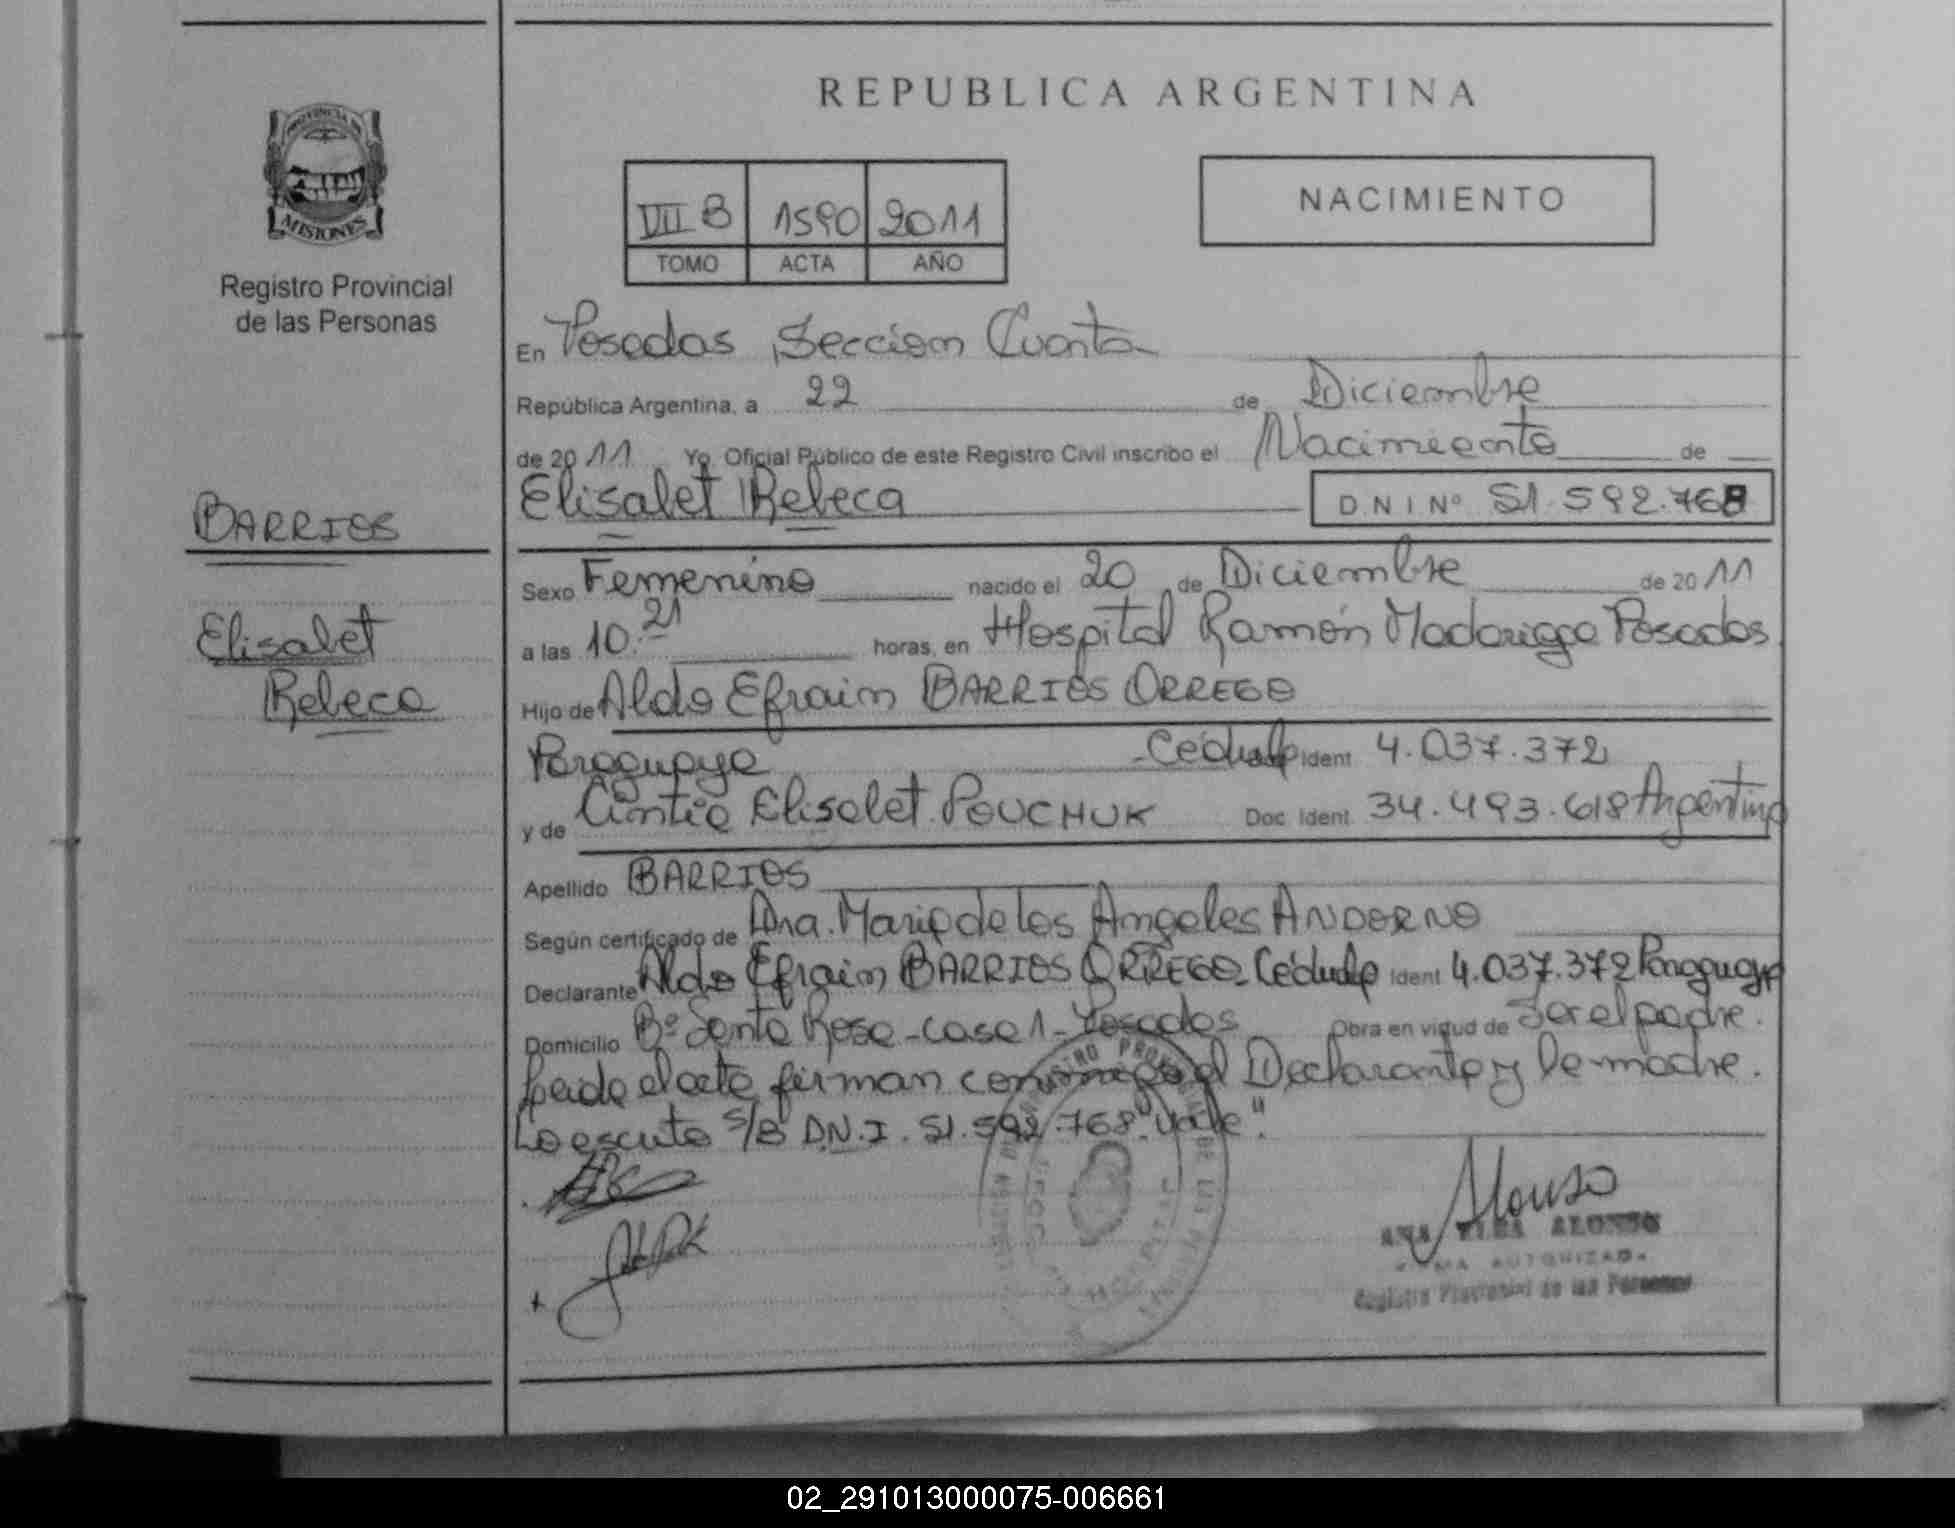 REPUBLICA ARGENTINA
PROVINCIA DE
MISIONES
Registro Provincial
de las Personas
VII B 1590 2011
TOMO ACTA AÑO
NACIMIENTO
En Posadas, Seccion Cuarta
República Argentina, a 22 de Diciembre
de 2011 Yo, Oficial Público de este Registro Civil inscribo el Nacimiento de
Elisabet Rebeca DNI Nº 51.592.768
BARRIOS
Elisabet
Rebeca
Sexo Femenino nacido el 20 de Diciembre de 2011
a las 10:21 horas, en Hospital Ramón Madariaga Posadas
Hijo de Aldo Efrain BARRIOS ORREGO
Paraguaya Cédula Ident 4.037.372
y de Cintia Elisabet POUCHUK Doc. Ident. 34.493.618 Argentina
Apellido BARRIOS
Según certificado de Dra. Maria de los Angeles ANDORNO
Declarante Aldo Efrain BARRIOS ORREGO-Cédula Ident 4.037.372 Paraguaya
Domicilio Bº Santa Rosa-casa 1-Posadas Obra en virtud de Ser el padre.
Leida el acta firman conmigo el Declarante y la madre.
Lo escrito s/B D.N.I. 51.592.768 "Vale".
Alonso
ANA ALONSO
FIRMA AUTORIZADA
Registro Provincial de las Personas
02_291013000075-006661